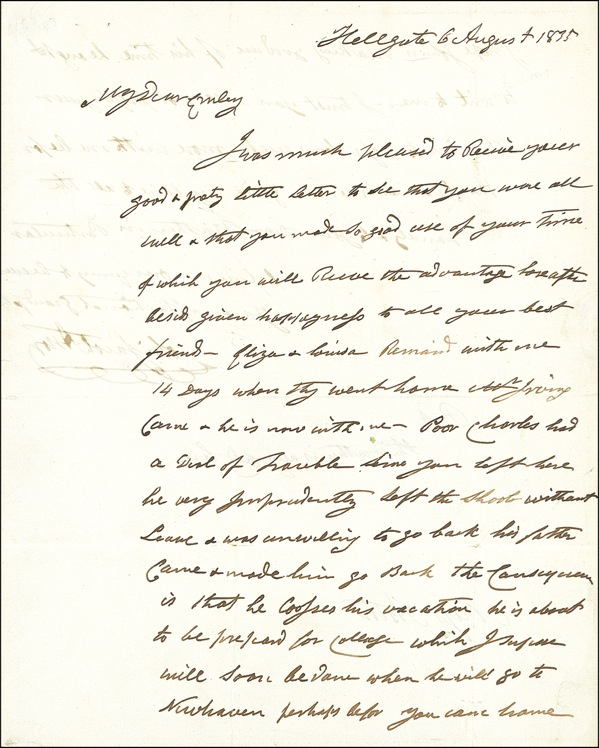 Hellgate 6 August 1835
My Dear Emley
I was much pleased to Recive your
good & prety little letter to see that you were all
well & that you made so good use of your time
of which you will Recive the advantage hereafter
besids given happyness to all your best
friend— Eliza & Louisa Remaind with me
14 Days when thy went home Mr Irving
Came & he is now with me— Poor Charles had
a Deal of Trouble since you left here
he very Imprudently left the Shool without
Leave & was unwilling to go back his father
Came & made him go Back the
is that he his vacation he is about
to be prepard for College which I supose
will soon be done when he will go to
Newhaven perhaps befor you came home